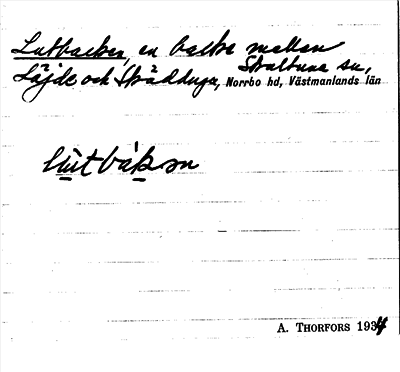 Lutbacken, en backe mellan
Skultuna sn,
Löjde och Skrädduga, Norrbo hd, Västmanlands län
lùtbákɐn
A. THORFORS 1934